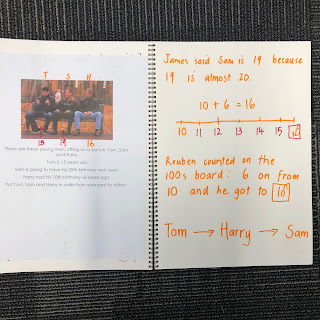 T S H
15 19 16
There are three young men, sitting on a bench: Tom, Sam
and Harry.
Tom is 15 years old.
Sam is going to have his 20th birthday next year.
Harry had his 10th birthday six years ago.
Put Tom, Sam and Harry in order from youngest to oldest.
James said Sam is 19 because
19 is almost 20.
10 + 6 = 16
10 11 12 13 14 15 16
Reuben counted on the
100s board: 6 on from
10 and he got to 16
Tom → Harry → Sam